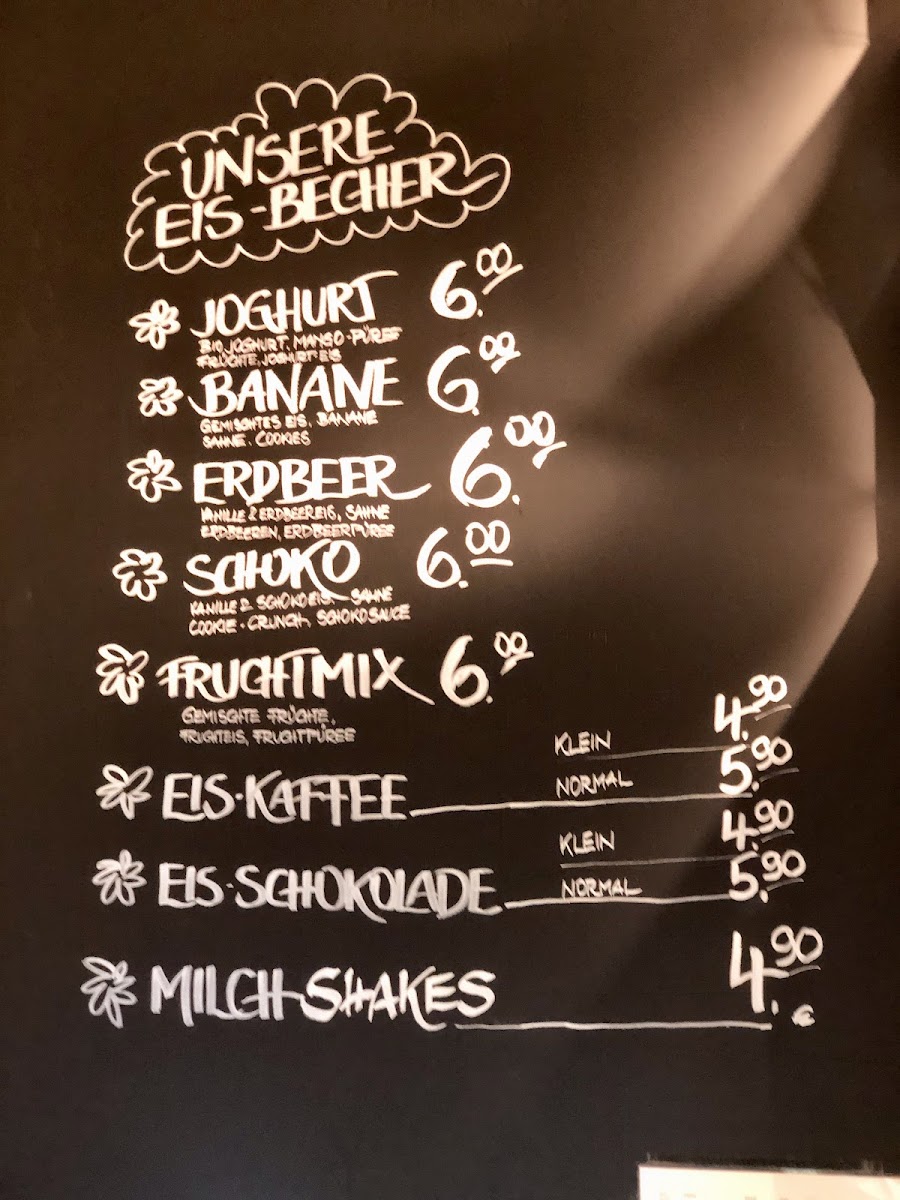 UNSERE
EIS-BECHER
JOGHURT 6.00
BIO JOGHURT, MANGO-PÜREE
FRÜCHTE, JOGHURTEIS
BANANE 6.00
GEMISCHTES EIS, BANANE
SAHNE, COOKIES
ERDBEER 6.00
VANILLE & ERDBEEREIS, SAHNE
ERDBEEREN, ERDBEERPÜREE
SCHOKO 6.00
VANILLE & SCHOKOEIS, SAHNE
COOKIE-CRUNCH, SCHOKOSAUCE
FRUCHTMIX 6.00
GEMISCHTE FRÜCHTE,
FRUCHTEIS, FRUCHTPÜREE
KLEIN 4.90
EIS-KAFFEE NORMAL 5.90
KLEIN 4.90
EIS-SCHOKOLADE NORMAL 5.90
MILCH-SHAKES 4.90 €